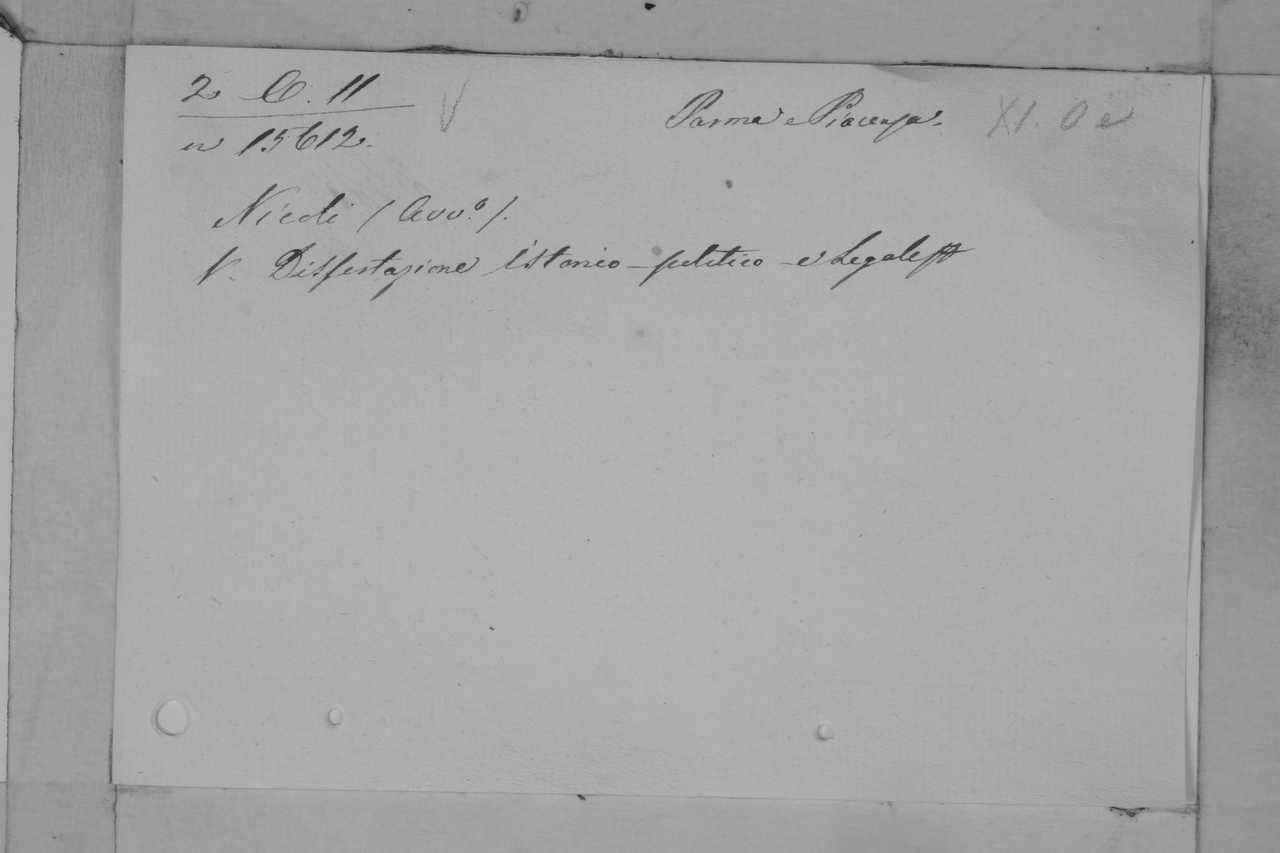 2 C. 11
n 15612.
Parma e Piacenza.
XI. O e
Nicoli (Avv.º).
V. Dissertazione istorico-politico-e Legale